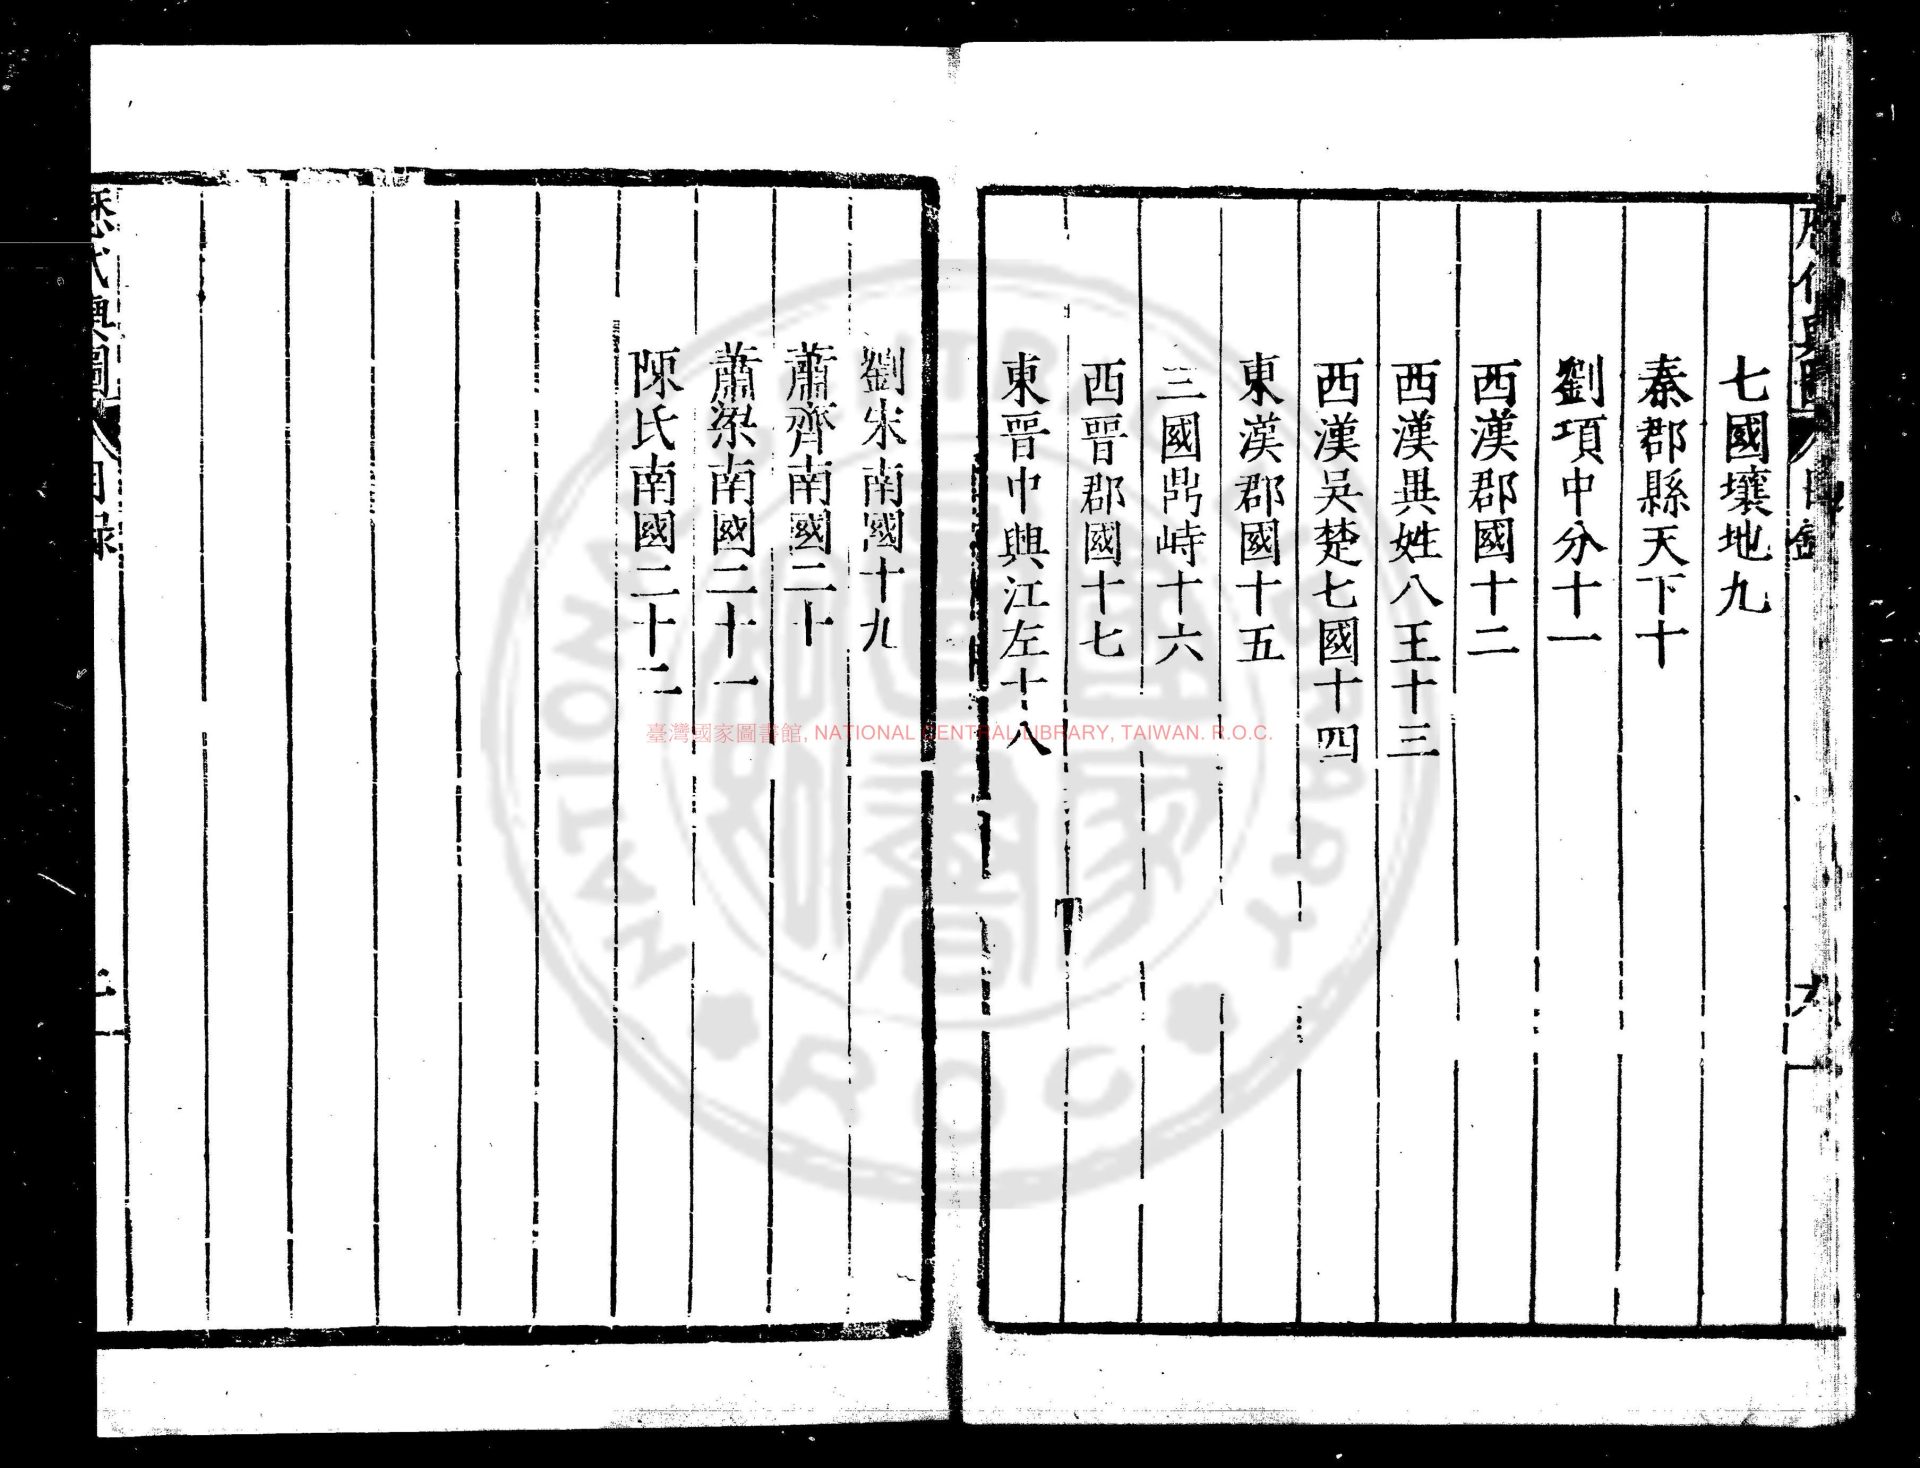 七國壤地九
秦郡縣天下十
劉項中分十一
西漢郡國十二
西漢異姓八王十三
西漢吳楚七國十四
東漢郡國十五
三國鼎峙十六
西晉郡國十七
東晉中興江左十八
劉宋南國十九
蕭齊南國二十
蕭梁南國二十一
陳氏南國二十二
臺灣國家圖書館, NATIONAL CENTRAL LIBRARY, TAIWAN. R.O.C.